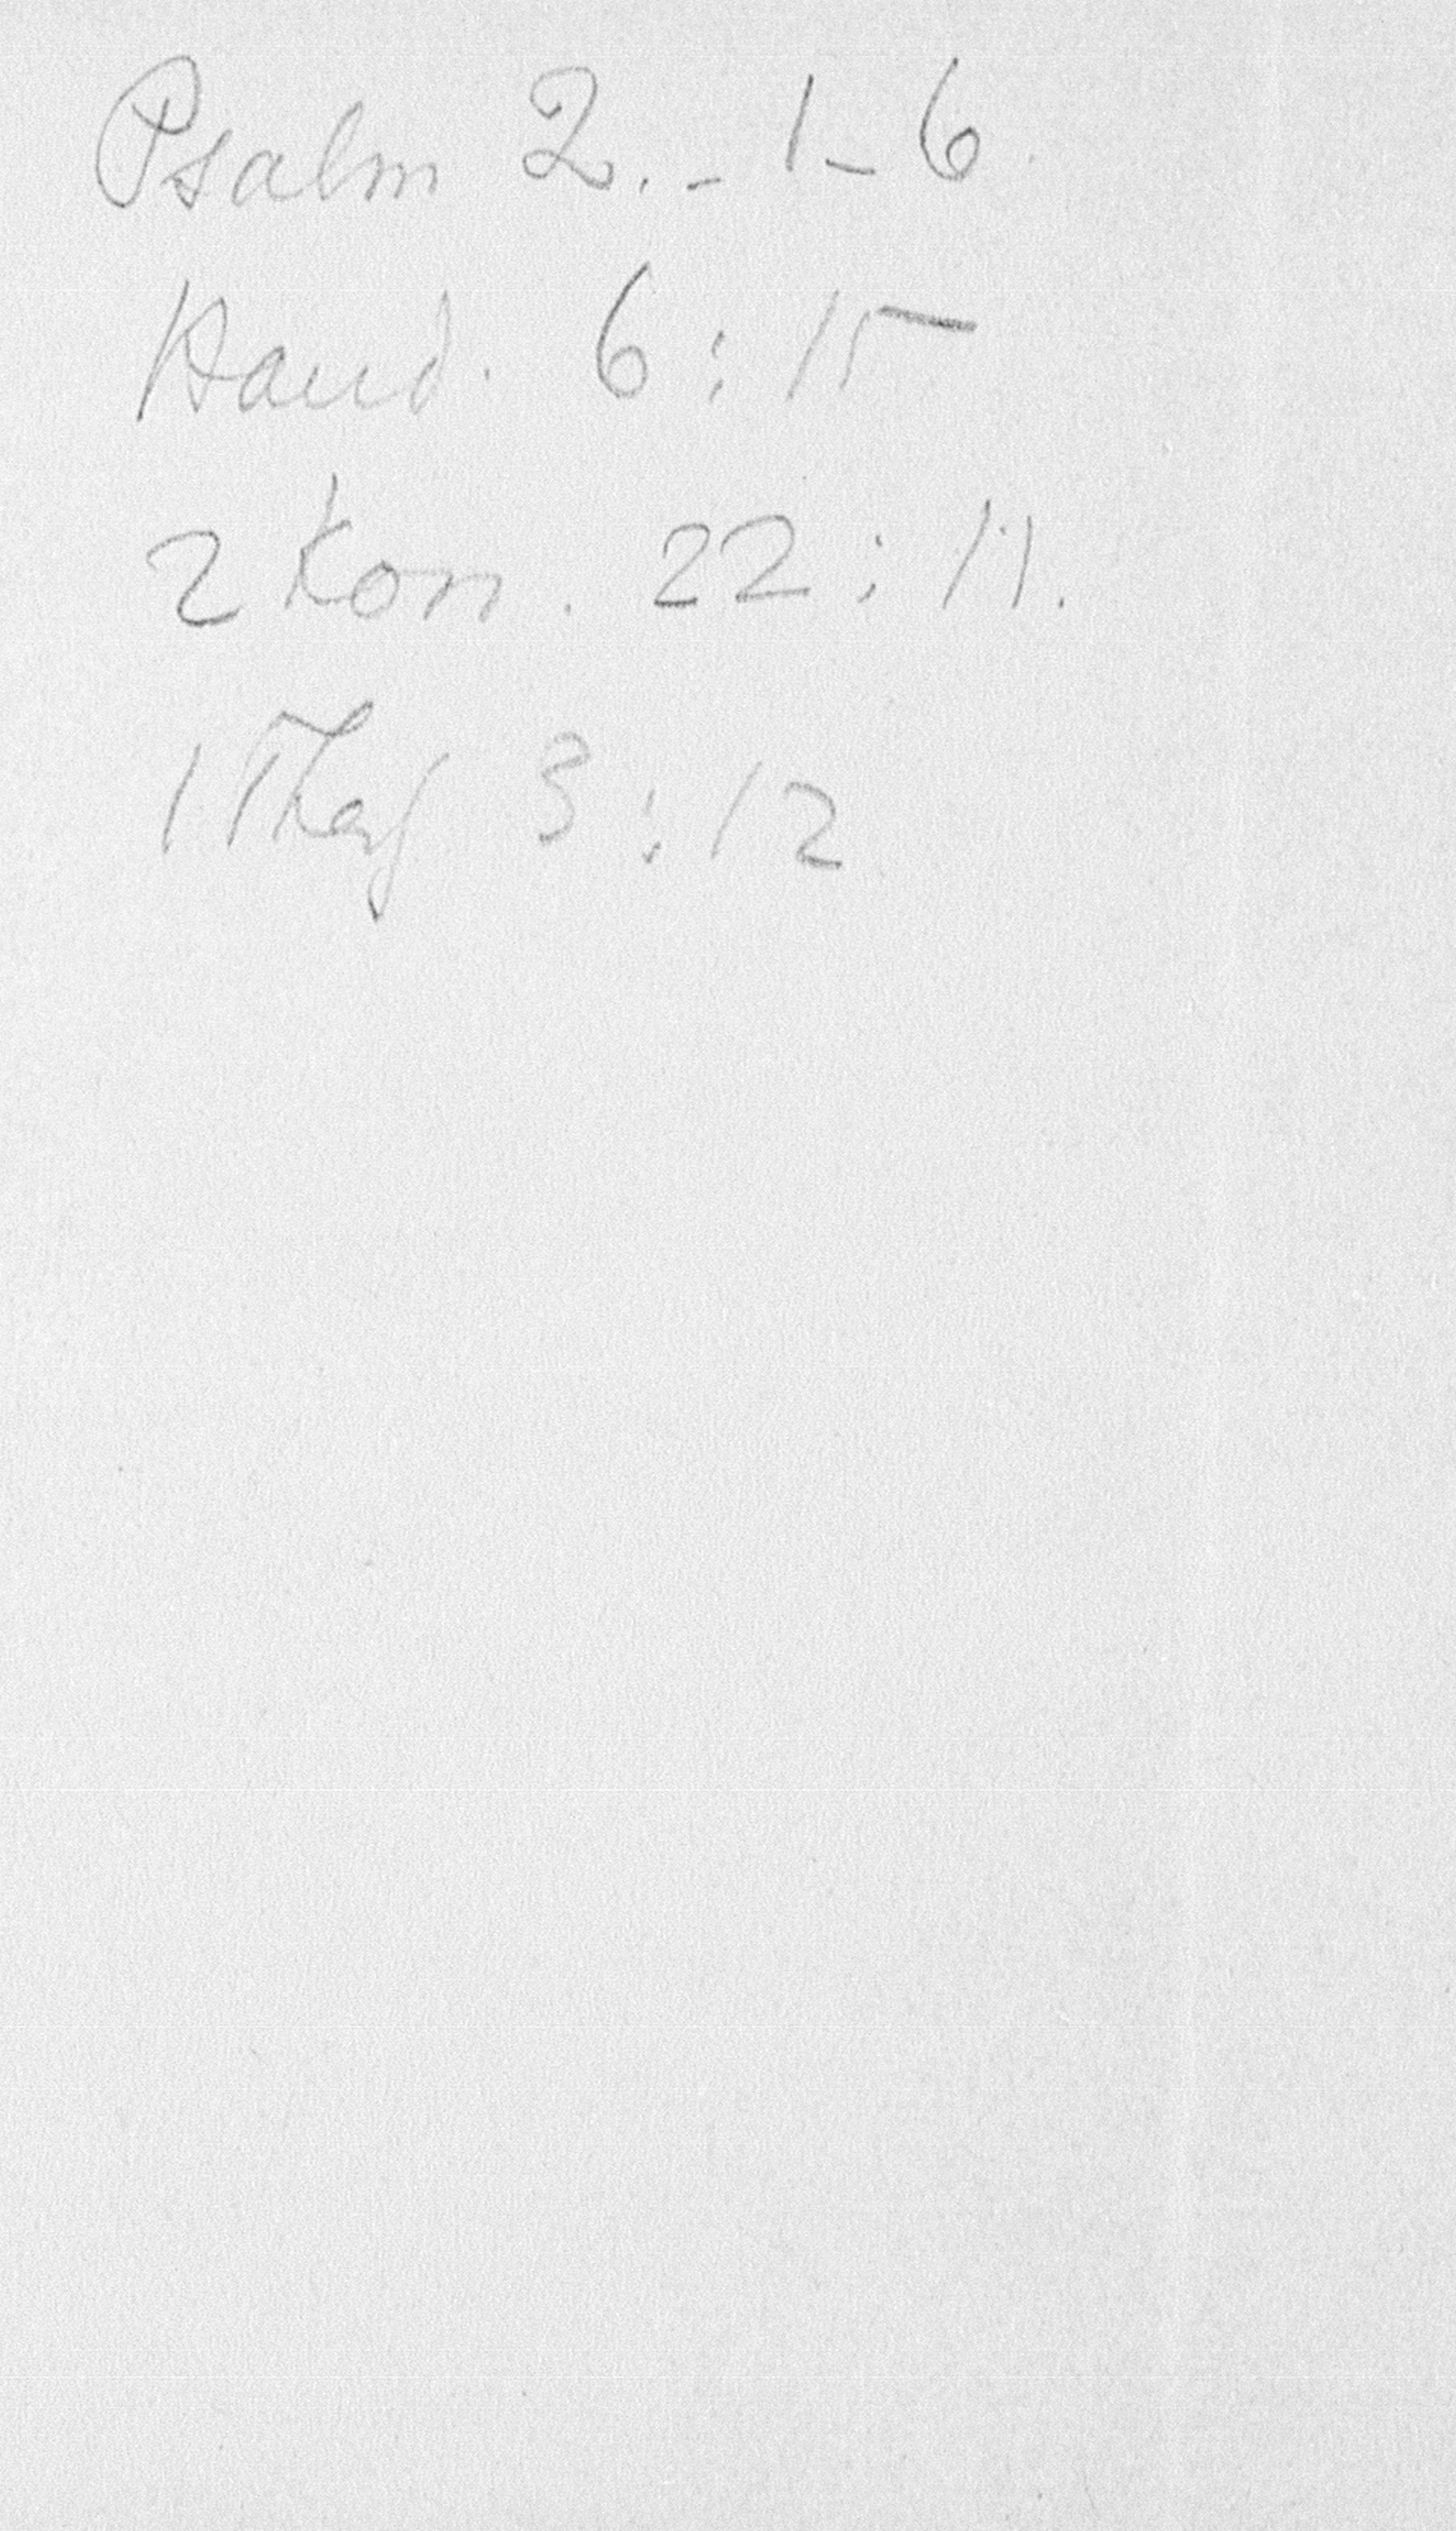 Psalm 2. - 1 - 6.
Hand. 6 : 15
2 Kon. 22 : 11.
1 Thess 3 : 12